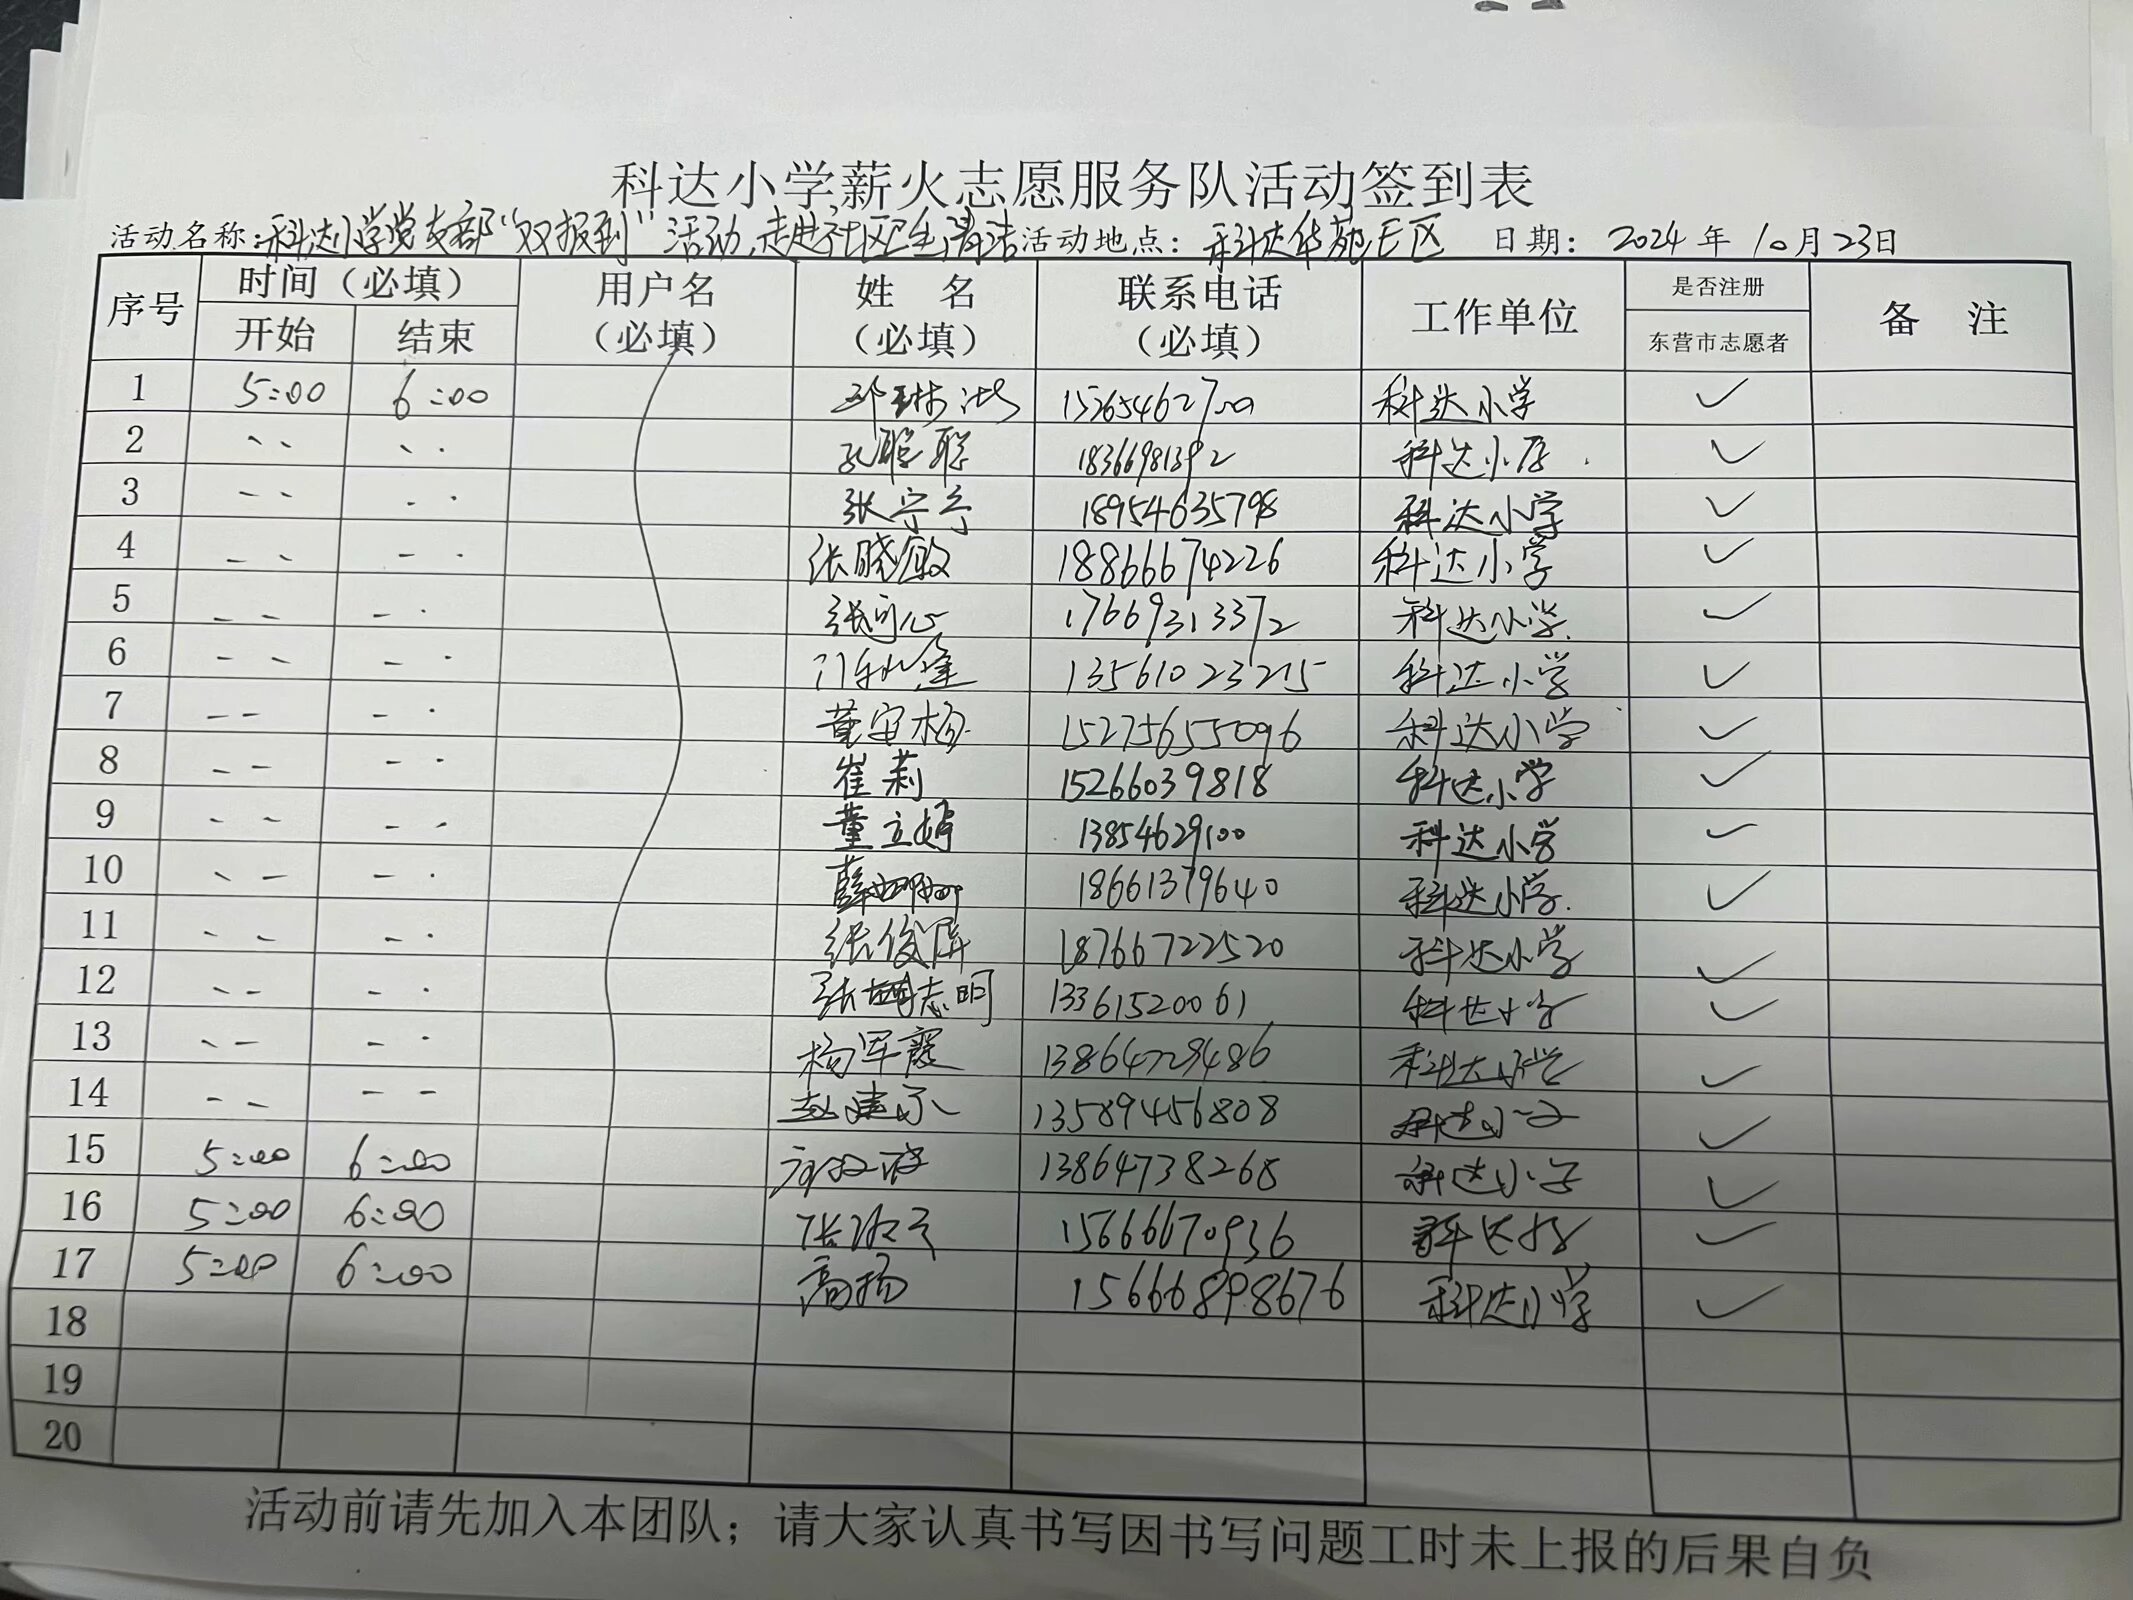 科达小学薪火志愿服务队活动签到表
活动名称：科达小学党支部“双报到”活动，走进社区卫生清洁 活动地点：科达华苑E区 日期：2024年10月23日
序号 时间（必填） 用户名（必填） 姓 名（必填） 联系电话（必填） 工作单位 是否注册 备 注
开始 结束 东营市志愿者
1 5:00 6:00 科达小学 ✓
2 〃 〃 孔聪聪 18366981392 科达小学 ✓
3 〃 〃 张宁宁 18954635798 科达小学 ✓
4 〃 〃 张晓敏 18866674226 科达小学 ✓
5 〃 〃 张可心 17669313372 科达小学 ✓
6 〃 〃 13561023215 科达小学 ✓
7 〃 〃 科达小学 ✓
8 〃 〃 崔莉 15266039818 科达小学 ✓
9 〃 〃 董立娟 13854629100 科达小学 ✓
10 〃 〃 薛娜娜 18661379640 科达小学 ✓
11 〃 〃 张俊屏 18766722520 科达小学 ✓
12 〃 〃 张志明 13361520061 科达小学 ✓
13 〃 〃 杨军霞 13864729486 科达小学 ✓
14 〃 〃 13589456808 科达小学 ✓
15 5:00 6:00 13864738268 科达小学 ✓
16 5:00 6:00 15666670936 科达小学 ✓
17 5:00 6:00 高扬 15666898676 科达小学 ✓
18
19
20
活动前请先加入本团队；请大家认真书写因书写问题工时未上报的后果自负